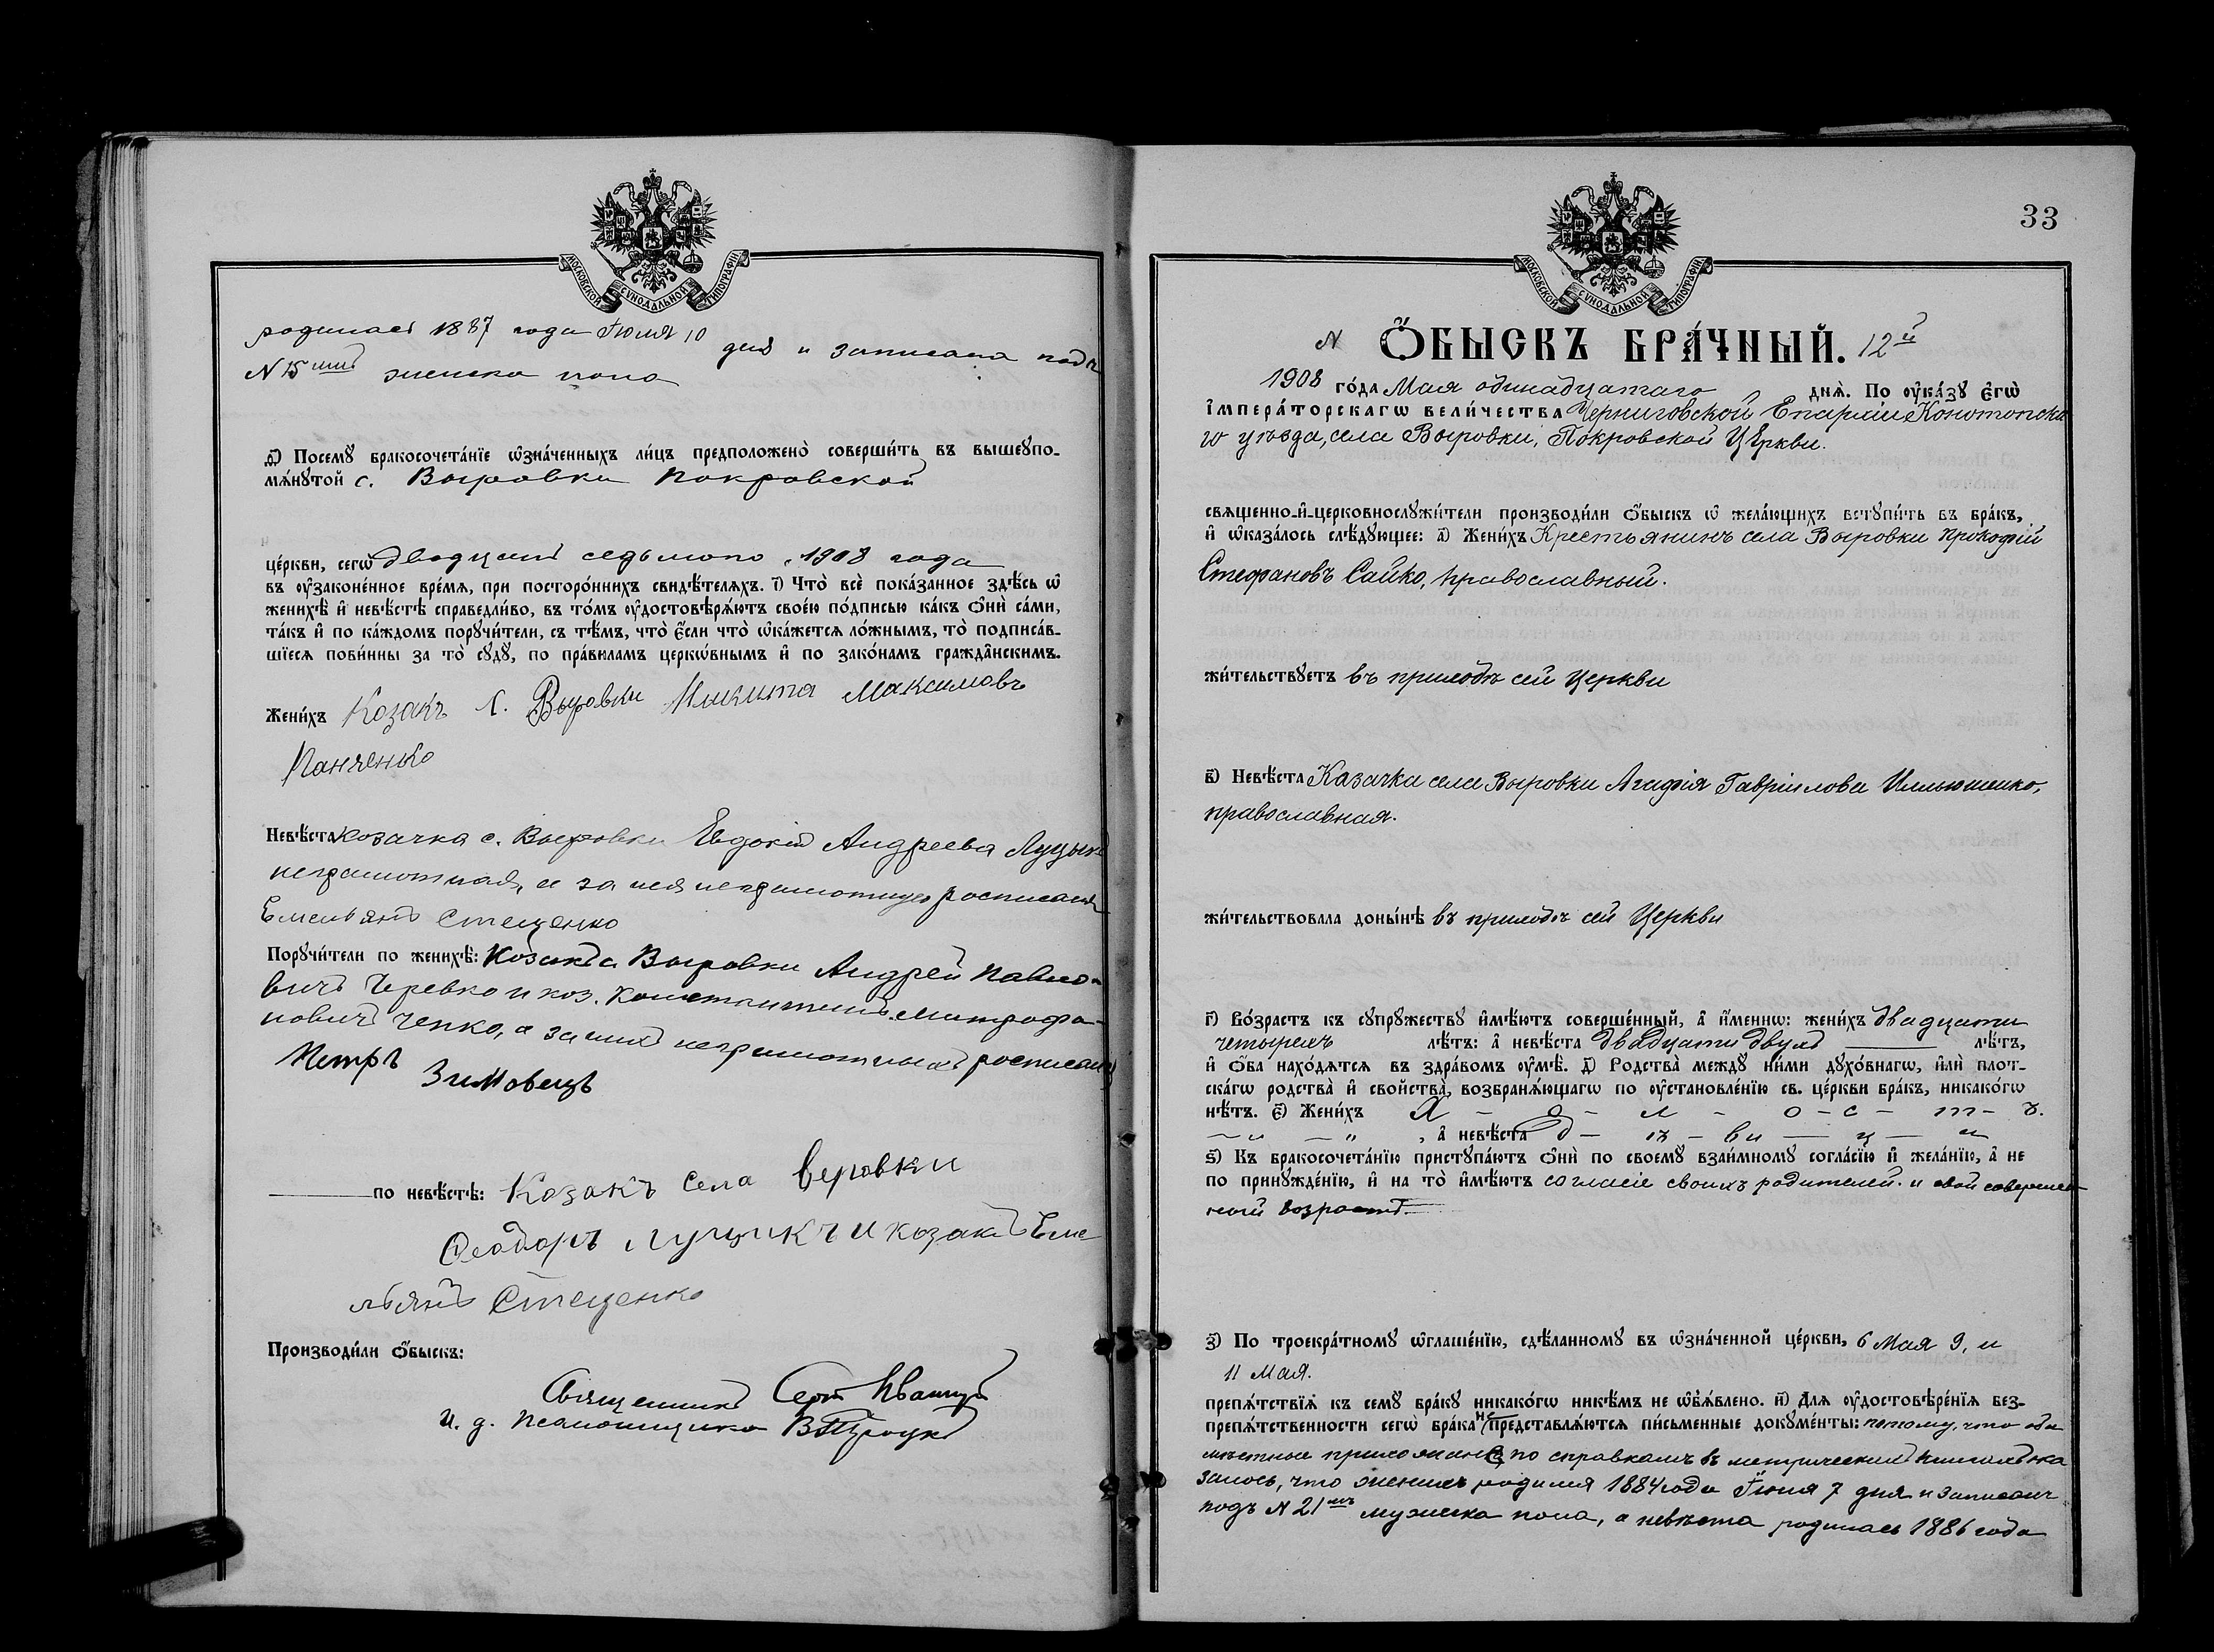 МОСКОВСКОЙ СѴНОДАЛЬНОЙ ТИПОГРАФІИ
родилась 1887 года Іюля 10 дня и записана подъ
N 15 женска пола
д҃і) Посемꙋ̀ бракосочета́нїе ѡ҆зна́ченныхъ ли́цъ предположено̀ соверши́ть въ вышеꙋпо-
мѧ́нꙋтой с. Выровки Покровской
це́ркви, сегѡ̀ двадцать седьмого 1908 года
въ ᲂу҆зако́ненное вре́мѧ, при посторо́ннихъ свидѣ́телѧхъ. і҃) Что̀ всѐ пока́занное здѣ́сь ѡ҆
женихѣ̀ и҆ невѣ́стѣ справедли́во, въ то́мъ ᲂу҆достовѣрѧ́ютъ свое́ю по́дписью ка́къ ѻ҆нѝ са́ми,
та́къ и҆ по ка́ждомъ порꙋчи́тели, съ тѣ́мъ, что̀ є҆́сли что̀ ѡ҆ка́жетсѧ ло́жнымъ, то̀ подписа́в-
шїесѧ пови́нны за то̀ сꙋдꙋ̀, по пра́виламъ церкѡ́внымъ и҆ по зако́намъ гражда̂нскимъ.
Жени́хъ Козакъ с. Выровки Никита Максимовъ
Панченько
Невѣ́ста козачка с. Выровки Евдокія Андреева Луцык
неграмотная, а за нея неграмотную росписался
Емельянъ Стеценко
Порꙋчи́тели по женихѣ̀: Козакъ с Выровки Андрей Павло-
вичъ Черевко и коз. Константинъ Митрофа-
новичъ Чепко, а за них неграмотныхъ росписался
Петръ Зимовецъ
по невѣ́стѣ: Козакъ села Веровки
Ѳеодоръ Луцикъ и козакъ Еме
льянъ Стеценко
Производи́ли ѻ҆́быскъ:
Священникъ Серг Иващ
И. д. псаломщика В Троцк
33
МОСКОВСКОЙ СѴНОДАЛЬНОЙ ТИПОГРАФІИ
N Ѻ҆́БЫСКЪ БРА́ЧНЫЙ. 12й
1908 го́да Мая одинадцатаго днѧ̀. По ᲂу҆ка́зꙋ є҆гѡ̀
і҆мпера́торскагѡ вели́чества Черниговской Епархіи Конотопска
го уѣзда, села Выровки, Покровской Церкви.
свѧщенно-и҆-церковнослꙋжи́тели производи́ли ѻ҆́быскъ ѡ҆ жела́ющихъ встꙋпи́ть въ бра́къ,
и҆ ѡ҆каза́лось слѣ́дꙋющее: а҃) Жени́хъ Крестьянинъ села Выровки Прокофій
Стефановъ Сайко, православный.
жи́тельствꙋетъ въ приходѣ сей Церкви
в҃) Невѣ́ста Казачка села Выровки Агафія Гавріилова Ильюшенко,
православная.
жи́тельствовала доны́нѣ въ приходѣ сей Церкви
г҃) Во́зрастъ къ сꙋпрꙋ́жествꙋ и҆мѣ́ютъ соверше́нный, а҆ и҆́меннѡ: жени́хъ двадцати
четырехъ лѣ́тъ: а҆ невѣ́ста двадцати двухъ лѣ́тъ,
и҆ ѻ҆́ба нахо́дѧтсѧ въ здра́вомъ ᲂу҆мѣ̀. д҃) Родства̀ междꙋ̀ ни́ми дꙋхо́внагѡ, и҆лѝ плот-
ска́гѡ родства̀ и҆ свойства̀, возбранѧ́ющагѡ по ᲂу҆становле́нїю св. це́ркви бра́къ, никако́гѡ
нѣ́тъ. є҃) Жени́хъ х - о - л - о - с - т - ъ.
, а҆ невѣ́ста д - ѣ - ви - ц - а
ѕ҃) Къ бракосочета́нїю пристꙋпа́ютъ ѻ҆нѝ по своемꙋ̀ взаи́мномꙋ согла́сїю и҆ жела́нїю, а҆ не
по принꙋжде́нїю, и҆ на то̀ и҆мѣ́ютъ согласіе своихъ родителей. и свой совершен
ный возрастъ.
з҃) По троекра́тномꙋ ѡ҆глаше́нїю, сдѣ́ланномꙋ въ ѡ҆зна́ченной це́ркви, 6 Мая 9, и
11 Мая.
препѧ́тствїѧ къ семꙋ̀ бра́кꙋ никако́гѡ никѣ́мъ не ѡ҆б̾ѧ́влено. и҃) Для ᲂу҆достовѣре́нїѧ без-
препѧ́тственности сегѡ̀ бра́ка не представлѧ́ютсѧ пи́сьменные докꙋме́нты: потому, что оба
мѣстные прихожане, по справкамъ въ метрическихъ книгахъ ока
залось, что женихъ родился 1884 года Іюня 7 дня и записанъ
подъ N 21мъ мужска пола, а невѣста родилась 1886 года